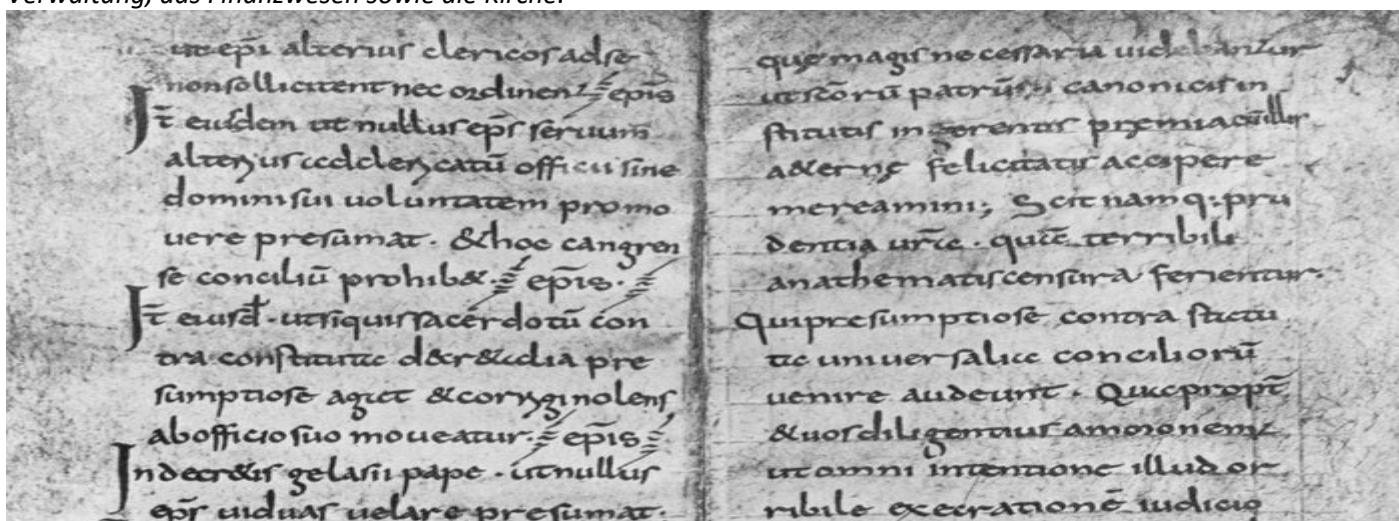 Verwaltung, das Finanzwesen sowie die Kirche.
ut ep̄i alterius clericos ad se
non sollicitent nec ordinent ep̄is
It̄ eiusdem ut nullus ep̄s seruum
alterius ad clericatū officii sine
domini sui uoluntatem promo
uere presumat. & hoc cangren
se conciliū prohib&. ep̄is.
It̄ eiusd̄. ut si quis sacerdotū con
tra constituta decr&alia pre
sumptiose agit & corrigi nolens
ab officio suo moueatur. ep̄is
In decr&is gelasii pape. ut nullus
ep̄s uiduas uelare presumat.
quę magis necessaria uidebantur
ut scōrū patrū canonicis in
stitutis premia cū illis
a&ernę felicitatis accipere
mereamini; Scit namq: pru
dentia ur̄a. quā terribili
anathematis censura ferientur.
Qui presumptiose contra statu
ta uniuersaliū conciliorū
uenire audeunt. Quapropt̄
& uos diligentius
ut omni intentione illud or
ribile execrationē iudicio